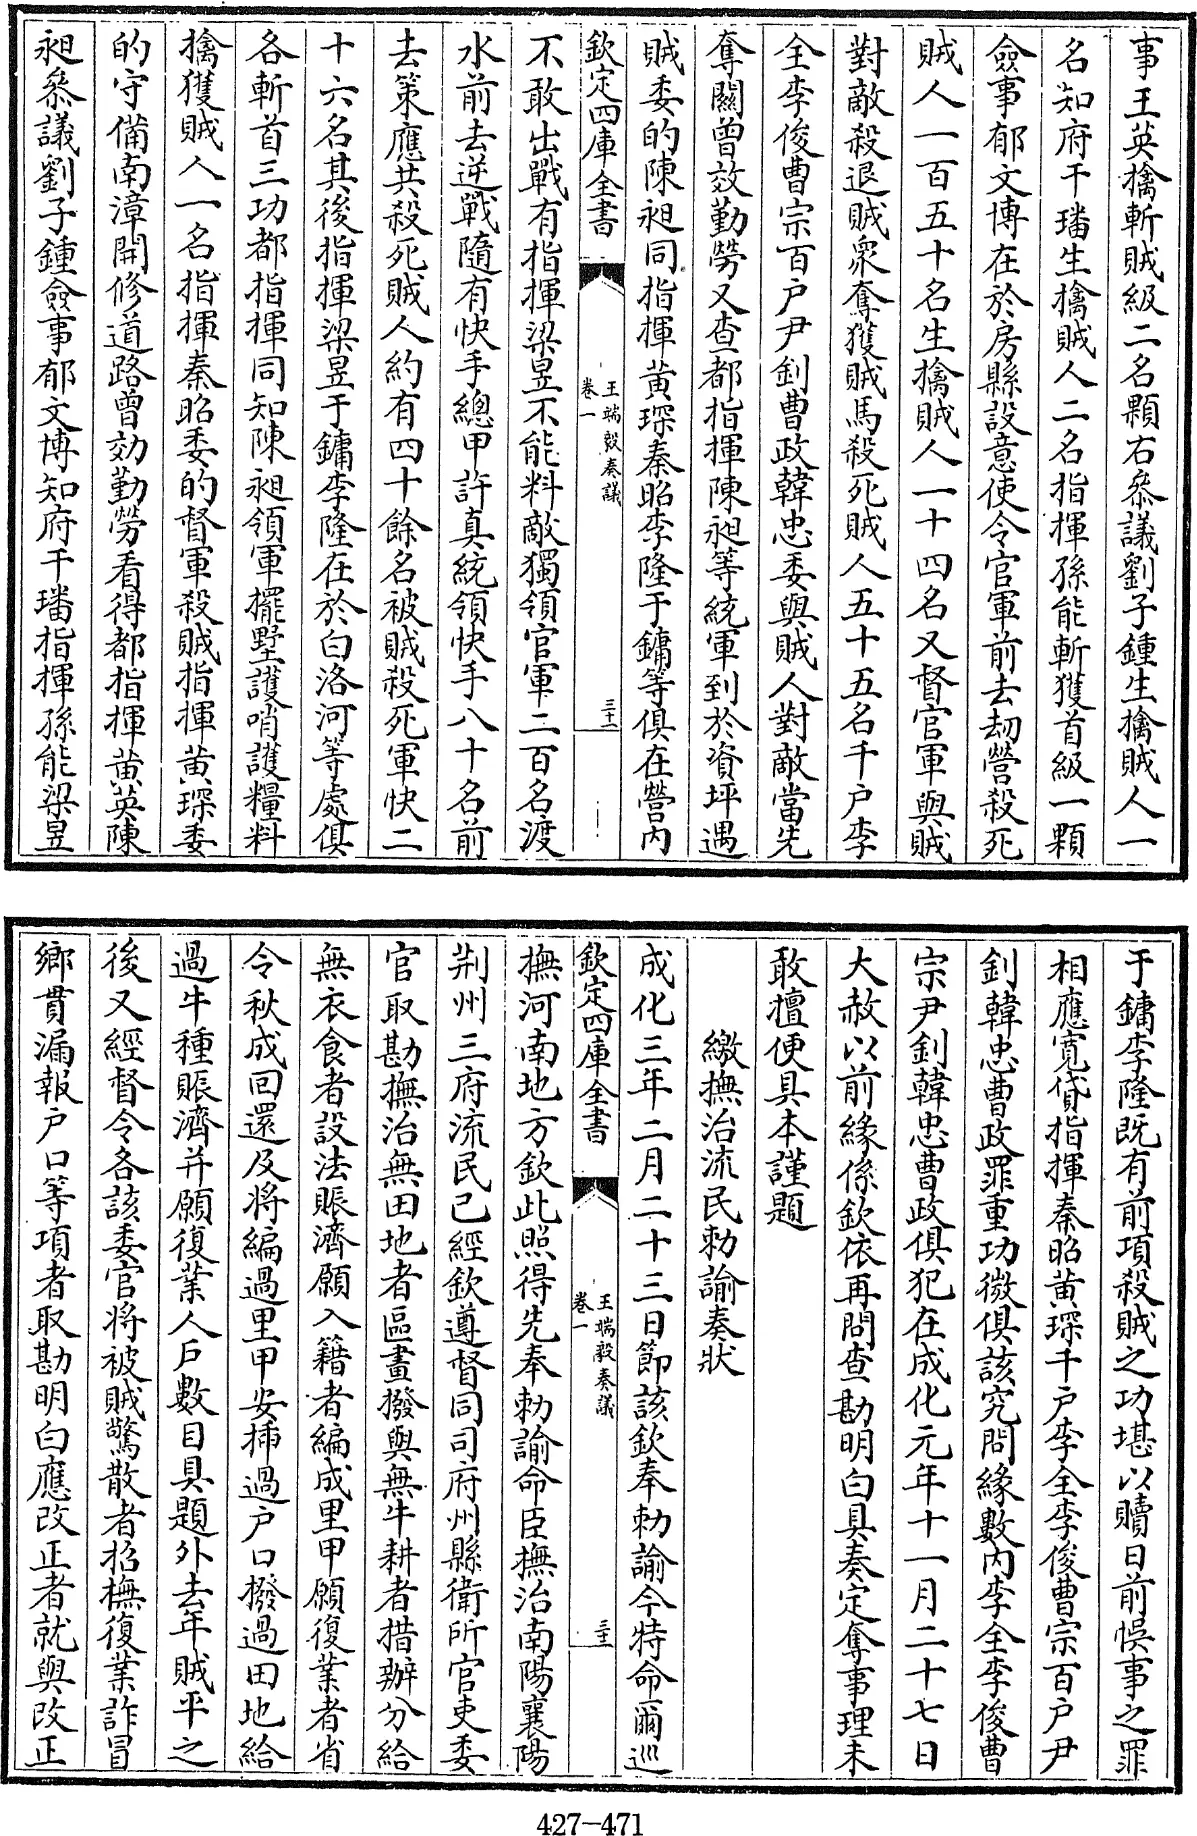 事王英擒斬賊級二名顆右叅議劉子鍾生擒賊人一
名知府干璠生擒賊人二名指揮孫能斬獲首級一顆
僉事郁文博在於房縣設意使令官軍前去刼營殺死
賊人一百五十名生擒賊人一十四名又督官軍與賊
對敵殺退賊衆奪獲賊馬殺死賊人五十五名千户李
全李俊曹宗百户尹釗曹政韓忠委與賊人對敵當先
奪關曾效勤勞又查都指揮陳昶等統軍到於資坪遇
賊委的陳昶同指揮黄琛秦昭李隆于鏞等俱在營内
欽定四庫全書
王端毅奏議
卷一
三十一
不敢出戰有指揮梁昱不能料敵獨領官軍二百名渡
水前去逆戰隨有快手總甲許真統領快手八十名前
去策應共殺死賊人約有四十餘名被賊殺死軍快二
十六名其後指揮梁昱于鏞李隆在於白洛河等處俱
各斬首三功都指揮同知陳昶領軍擺墅護哨護糧料
擒獲賊人一名指揮秦昭委的督軍殺賊指揮黄琛委
的守備南漳開修道路曾効勤勞看得都指揮黄英陳
昶叅議劉子鍾僉事郁文博知府干璠指揮孫能梁昱
于鏞李隆既有前項殺賊之功堪以贖日前悞事之罪
相應寛貸指揮秦昭黄琛千户李全李俊曹宗百户尹
釗韓忠曹政罪重功微俱該究問緣數内李全李俊曹
宗尹釗韓忠曹政俱犯在成化元年十一月二十七日
大赦以前緣係欽依再問查勘明白具奏定奪事理未
敢擅便具本謹題
繳撫治流民勅諭奏狀
成化三年二月二十三日節該欽奉勅諭今特命爾巡
欽定四庫全書
王端毅奏議
卷一
三十二
撫河南地方欽此照得先奉勅諭命臣撫治南陽襄陽
荆州三府流民已經欽遵督同司府州縣衛所官吏委
官取勘撫治無田地者區畫撥與無牛耕者措辦分給
無衣食者設法賑濟願入籍者編成里甲願復業者省
令秋成回還及將編過里甲安揷過户口撥過田地給
過牛種賑濟并願復業人户數目具題外去年賊平之
後又經督令各該委官將被賊驚散者招撫復業詐冒
鄉貫漏報户口等項者取勘明白應改正者就與改正
427-471